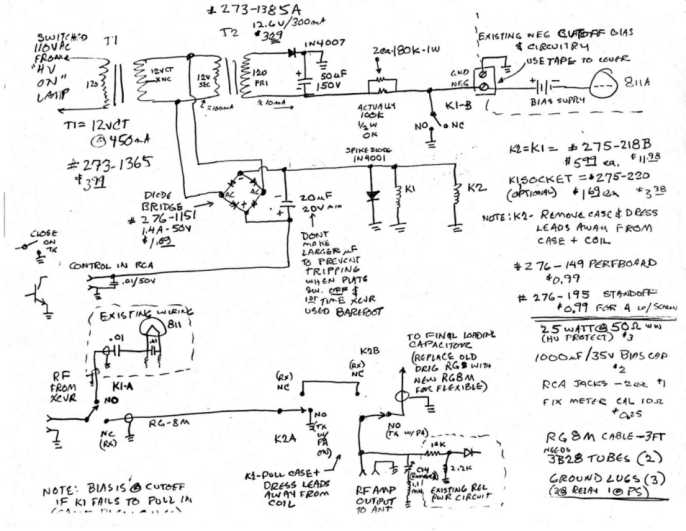 # 273-1385A
12.6V/300mA
$3.09
SWITCH'D
110VAC
FROM
"HV
ON"
LAMP
T1
T2
120
12VCT
XNC
12V
SEC
120
PRI
1N4007
50µF
150V
2ea/180K-1W
ACTUALLY
100K
1/2W
OK
K1-B
NO
NC
EXISTING NEG CUTOFF BIAS
& CIRCUITRY
USE TAPE TO COVER
GND
NEG
BIAS SUPPLY
811A
T1=12VCT
@ 450mA
# 273-1365
$3.99
DIODE
BRIDGE
# 276-1151
1.4A-50V
$1.09
AC
AC
20µF
20V min
SPIKE DIODE
1N4001
K1
K2
DONT
MAKE
LARGER µF
TO PREVENT
TRIPPING
WHEN PLATE
SW. OFF &
1ST TIME XCVR
USED BAREFOOT
K2=K1= # 275-218B
$5.99 ea. $11.98
K1SOCKET = #275-220
(OPTIONAL) $1.69 ea $3.38
NOTE: K2- REMOVE CASE & DRESS
LEADS AWAY FROM
CASE + COIL
# 276-149 PERFBOARD
$0.99
# 276-195 STANDOFF
$0.99 FOR 4 W/SCREWS
25 WATT @ 50Ω WW
(HV PROTECT) $3
1000µF/35V BIAS CAP
$2
RCA JACKS - 2ea $1
FIX METER CAL 10Ω
$0.25
RG8M CABLE - 3FT
3B28 TUBES (2)
GROUND LUGS (3)
CLOSE
ON
TX
CONTROL IN RCA
.01/50V
EXISTING WIRING
.01
811
RF
FROM
XCVR
K1-A
NO
NC
(RX)
RG-8M
K2A
(RX)
NC
NO
(TX
W/
PA
ON)
K2B
(RX)
NC
NO
(TX W/PA)
TO FINAL LOADING
CAPACITOR
(REPLACE OLD
ORIG RG8 WITH
NEW RG8M
FOR FLEXIBLE)
K2-PULL CASE +
DRESS LEADS
AWAY FROM
COIL
RF AMP
OUTPUT
TO ANT
10K
2.2K
EXISTING REL
PWR CIRCUIT
NOTE: BIAS IS @ CUTOFF
IF K1 FAILS TO PULL IN